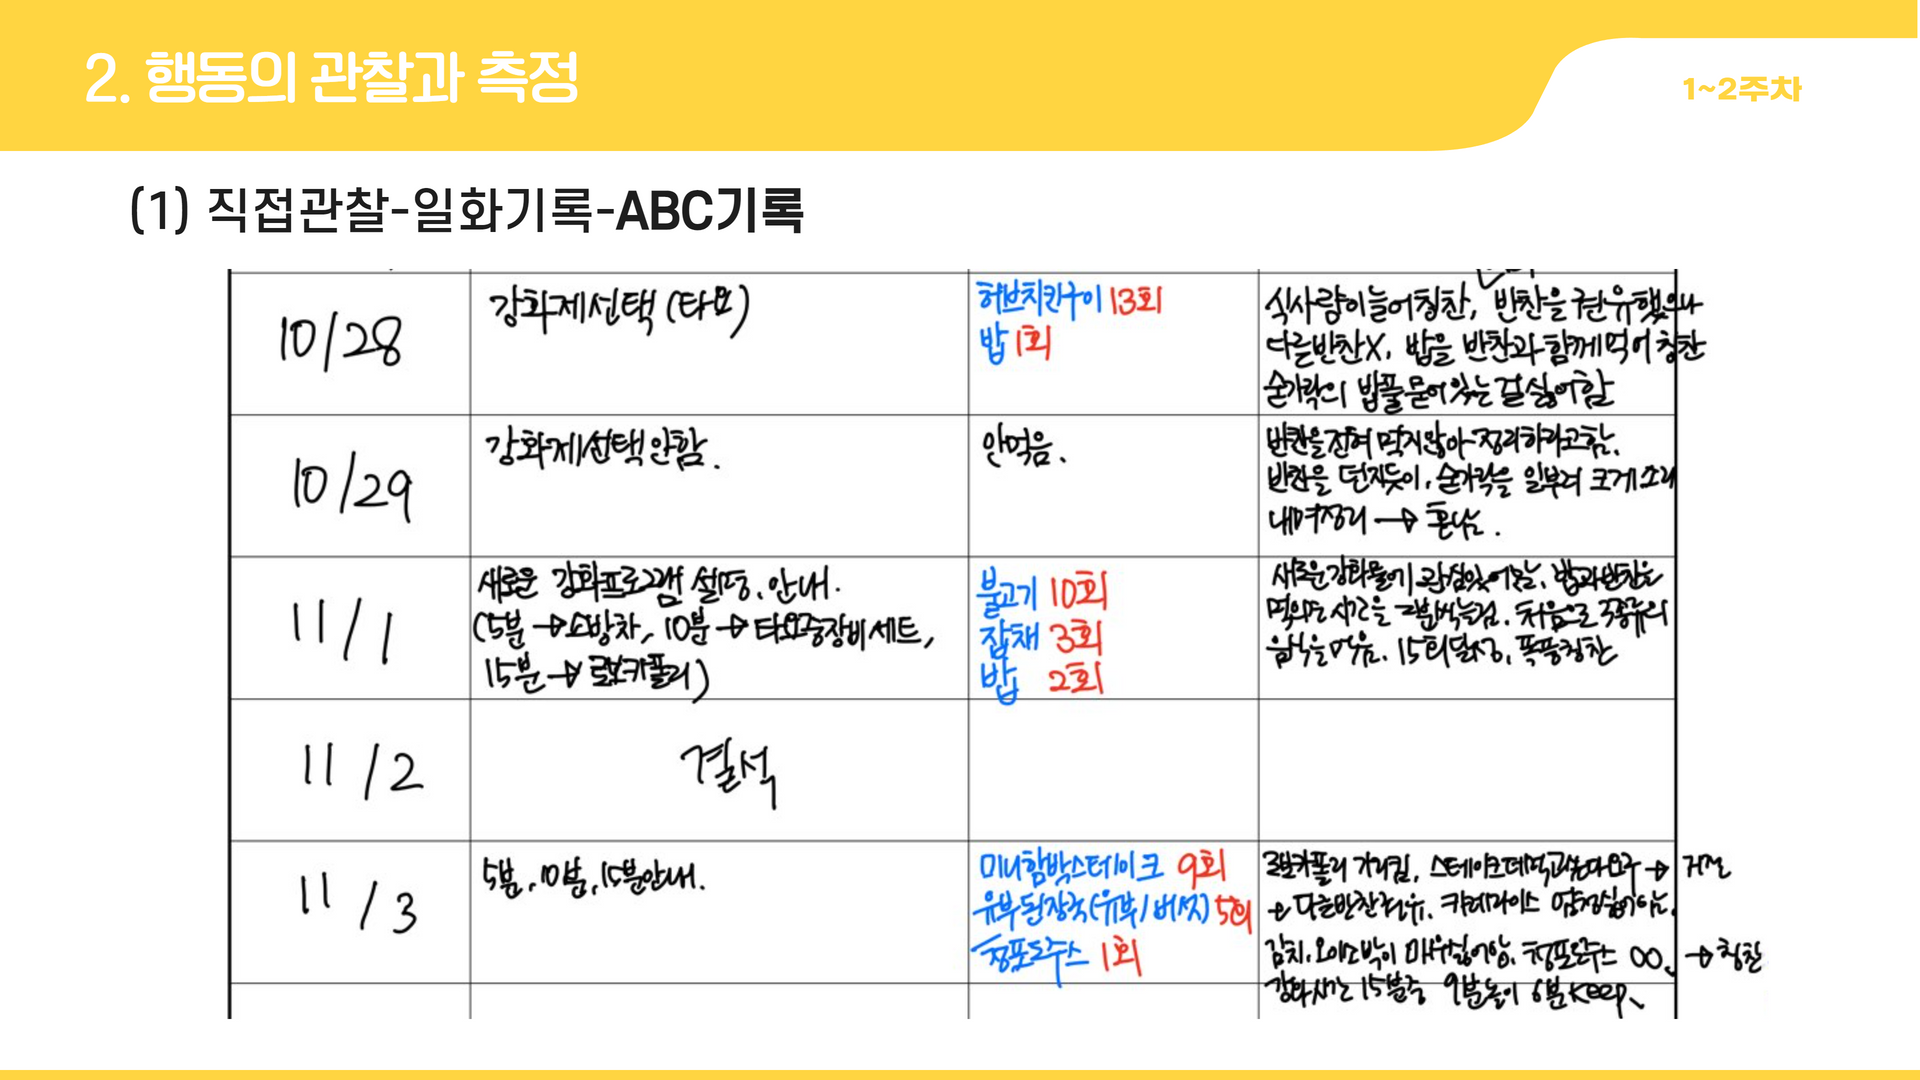 2. 행동의 관찰과 측정
1~2주차
(1) 직접관찰-일화기록-ABC기록
10/28
강화제선택 (타요)
허브치킨구이 13회
밥 1회
식사량이늘어칭찬, 반찬을 권유했으나
다른반찬X, 밥을 반찬과 함께먹어 칭찬
숟가락의 밥풀묻어있는걸 싫어함
10/29
강화제선택안함.
안먹음.
반찬을전혀 먹지않아 정리하라고함.
반찬을 던지듯이, 숟가락을 일부러 크게 소리
내며정리 → 혼남.
11/1
새로운 강화프로그램 설명, 안내.
(5분 → 소방차, 10분 → 타요중장비세트,
15분 → 로보카폴리)
불고기 10회
잡채 3회
밥 2회
새로운강화물에 관심있어하는, 밥과반찬을
먹으면 시간을 1분씩늘림. 처음으로 3종류의
음식을먹음. 15회달성, 폭풍칭찬
11/2
결석
11/3
5분, 10분, 15분안내.
미니함박스테이크 9회
유부된장국(유부/버섯) 5회
청포도주스 1회
로보카폴리 가리킴, 스테이크더먹고싶다요구 → 거절
다른반찬권유. 카레라이스
김치, 오이소박이 매우싫어함. 청포도주스 OO. → 칭찬
강화시간 15분중 9분놀이 6분 keep.